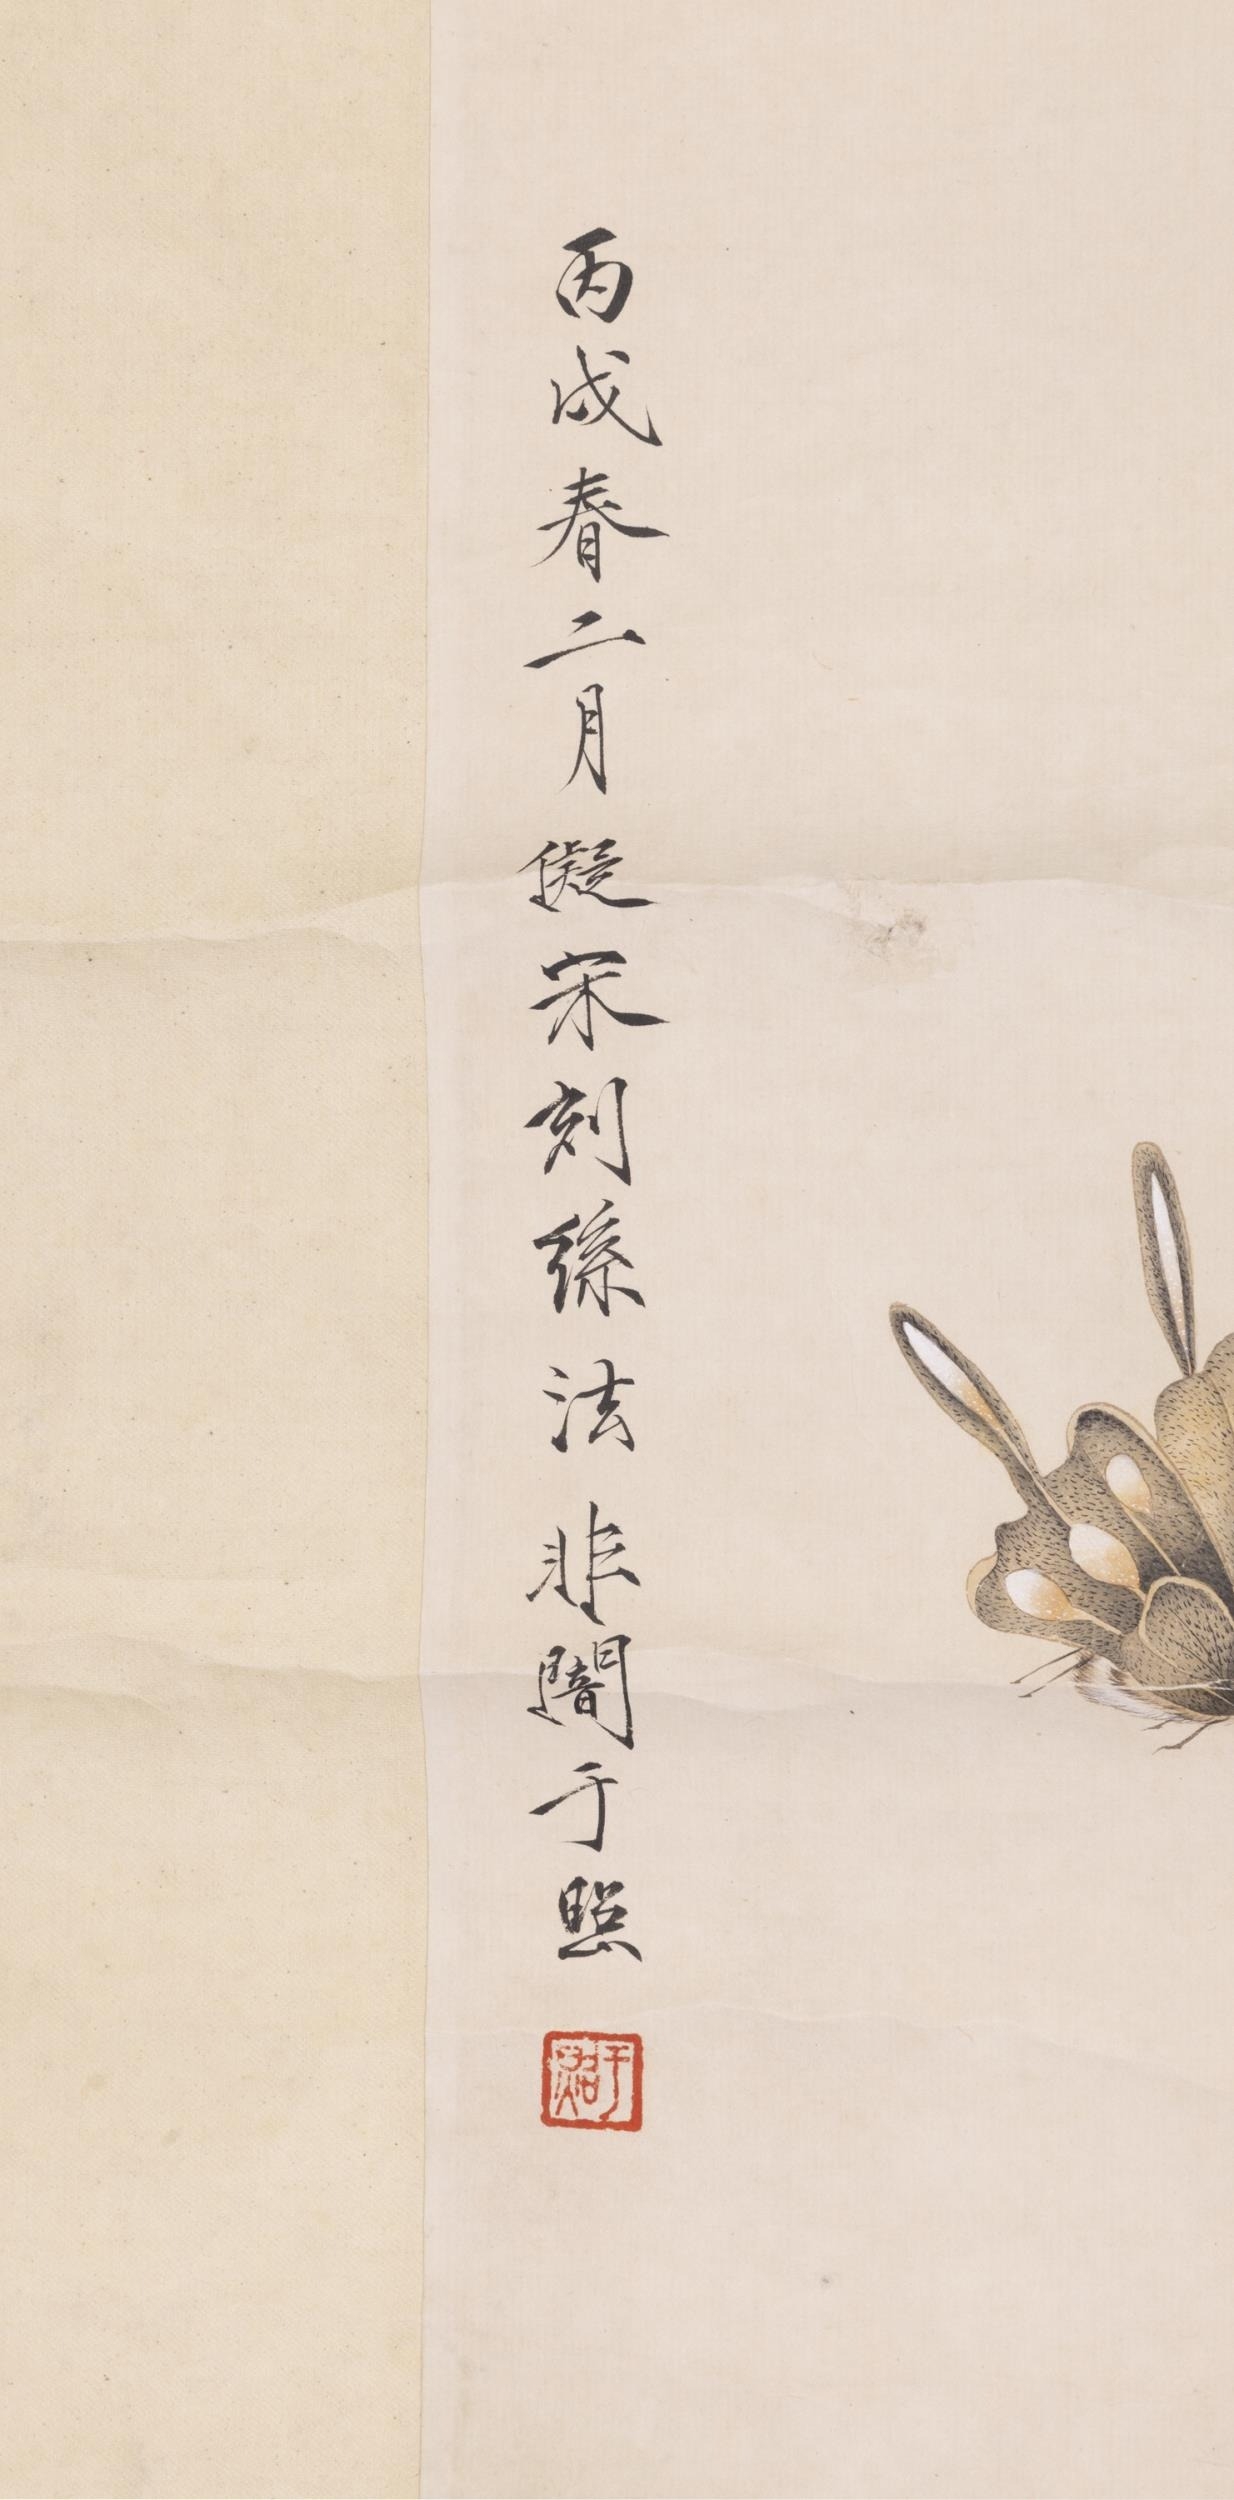 丙戌春二月儗宋刻絲法非闇于照
于照